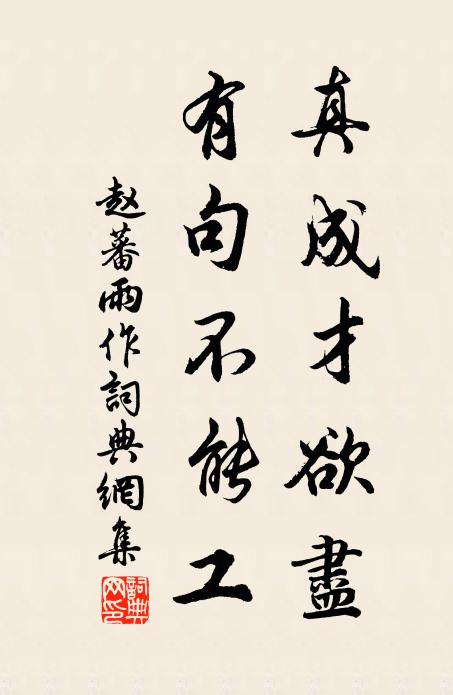 真成才欲盡
有句不能工
赵蕃雨作詞典網集
詞典网印